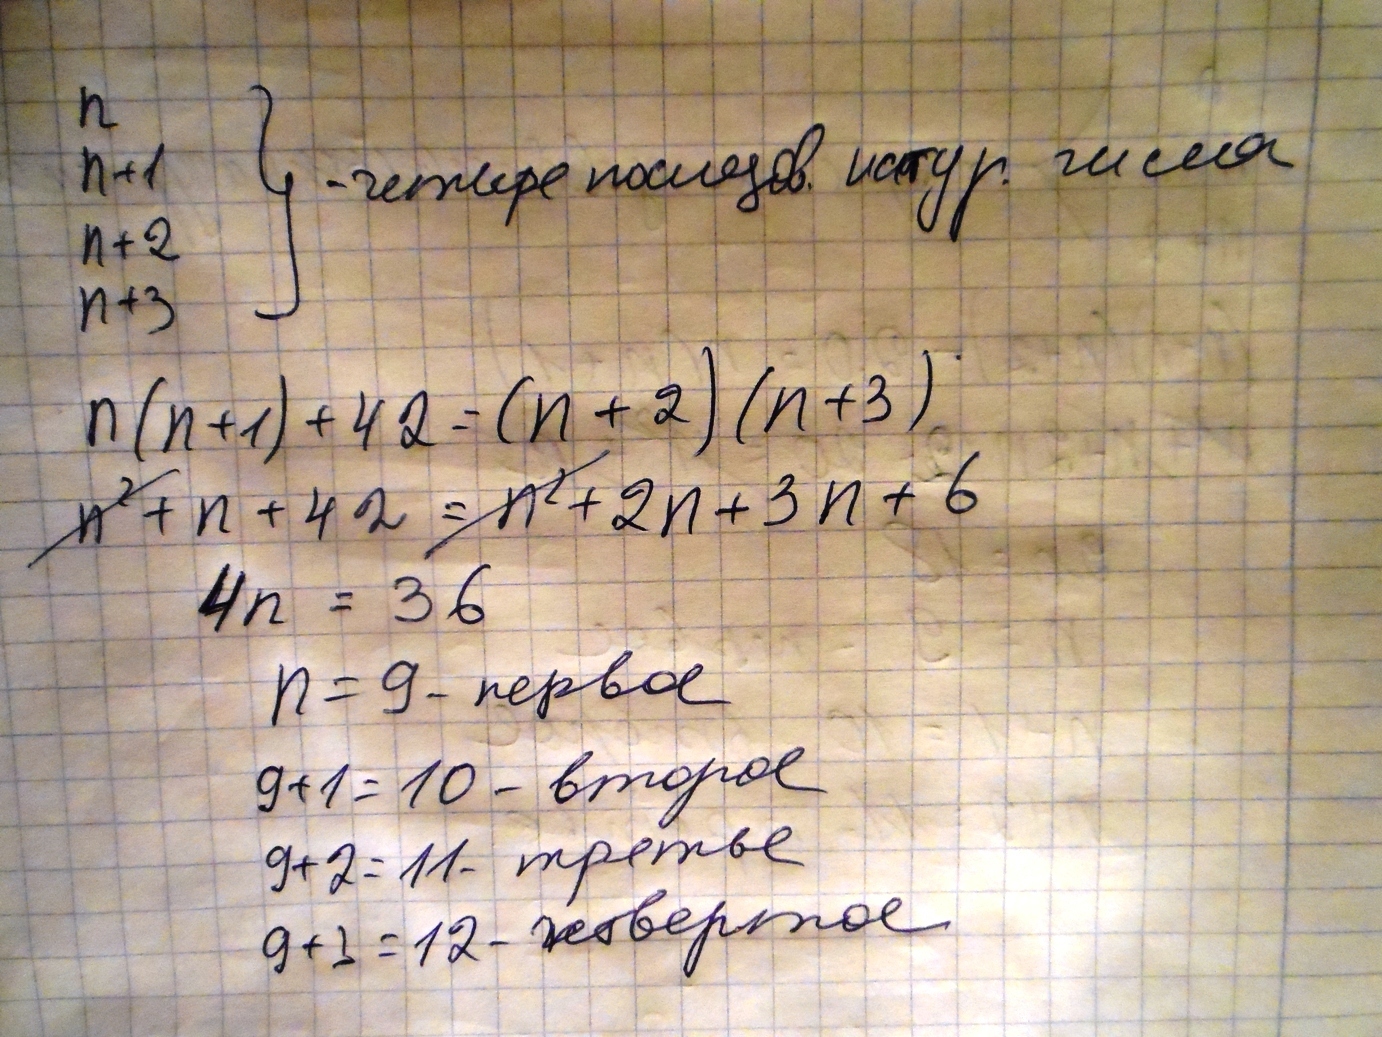 n
n+1
n+2
n+3
- четыре последов. натур. числа
n(n+1)+42=(n+2)(n+3)
n²+n+42=n²+2n+3n+6
4n = 36
n=9- первое
9+1=10- второе
9+2=11- третье
9+3=12- четвертое